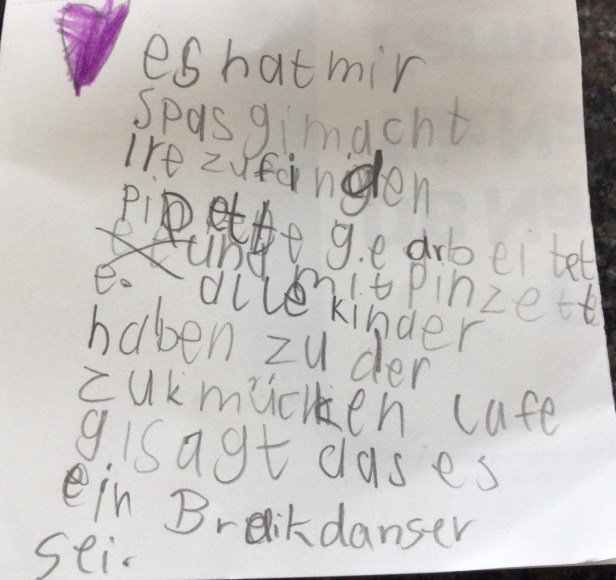 es hat mir
spas gimacht
ire zu finden
pipette ge arbeitet
und mit pinzette
e. alle kinder
haben zu der
zukmücken lafe
gisagt das es
ein Breikdanser
sei.